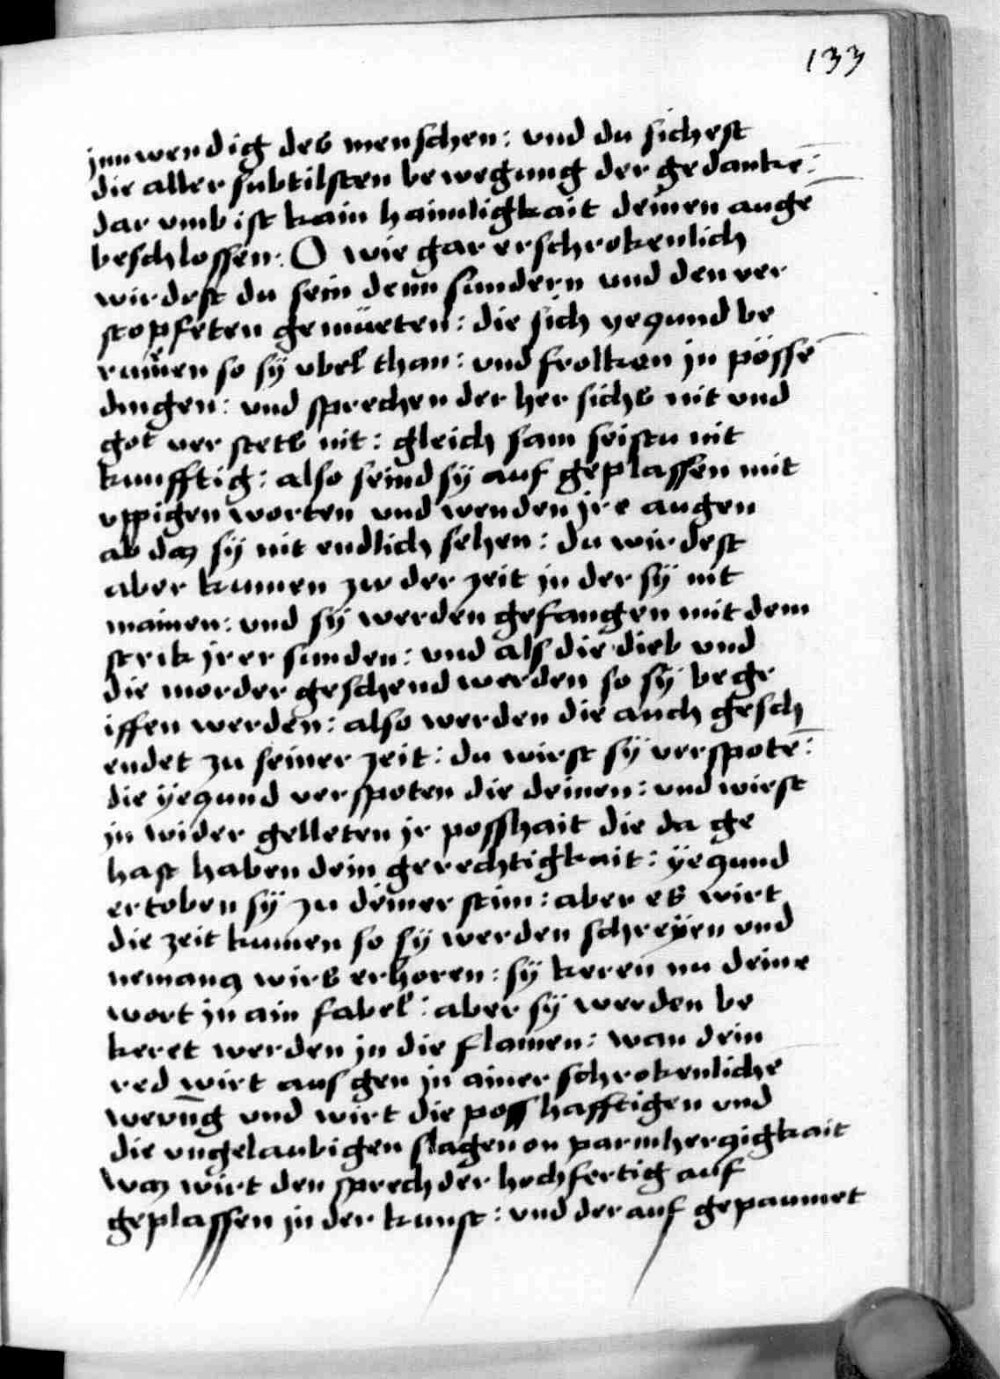 133
jnnwendig des menschen : und du sichest
die aller subtilsten bewegung der gedanke͂ :
dar vmb ist kain haimligkait deinen auge͂
beschlossen : O wie gar erschrokenlich
wirdest du sein denn sundern und den ver
stopfeten gemüeten : die sich yeczund be
rümen so sÿ vbel than : und frolken jn pösse͂
dingen : und sprechen der her sichs nit und
got verstets nit : gleich sam seistu nit
kunfftig : also seind sÿ auf geplassen mit
vppigen worten und wenden jre augen
ab daz sÿ nit endlich sehen : du wirdest
aber kumen zw der zeit jn der sÿ nit
mainen : und sÿ werden gefangen mit dem
strik jrer sunden : und als die dieb und
die morder geschend werden so sÿ begr
iffen werden : also werden die auch gesch
endet zu seiner zeit : du wirst sÿ verspote͂ :
die ÿeczund verspoten die deinen : und wirst
jn wider gelleten jr posshait die da ge
hast haben dein gerechtigkait : ÿeczund
ertoben sÿ zu deiner stim : aber es wirt
die zeit kumen so sÿ werden schreÿen und
nemancz wirs erhoren : sÿ keren nu deine
wort jn ain fabel : aber sÿ werden be
keret werden jn die flamen : wan dein
red wirt ausgen jn ainer schrokenliche͂
werung und wirt die poss hafftigen und
die ungelaubigen slagen on parmherczigkait
waz wirt den sprech der hochfertig auf
geplassen jn der kunst : und der auf gepaumet